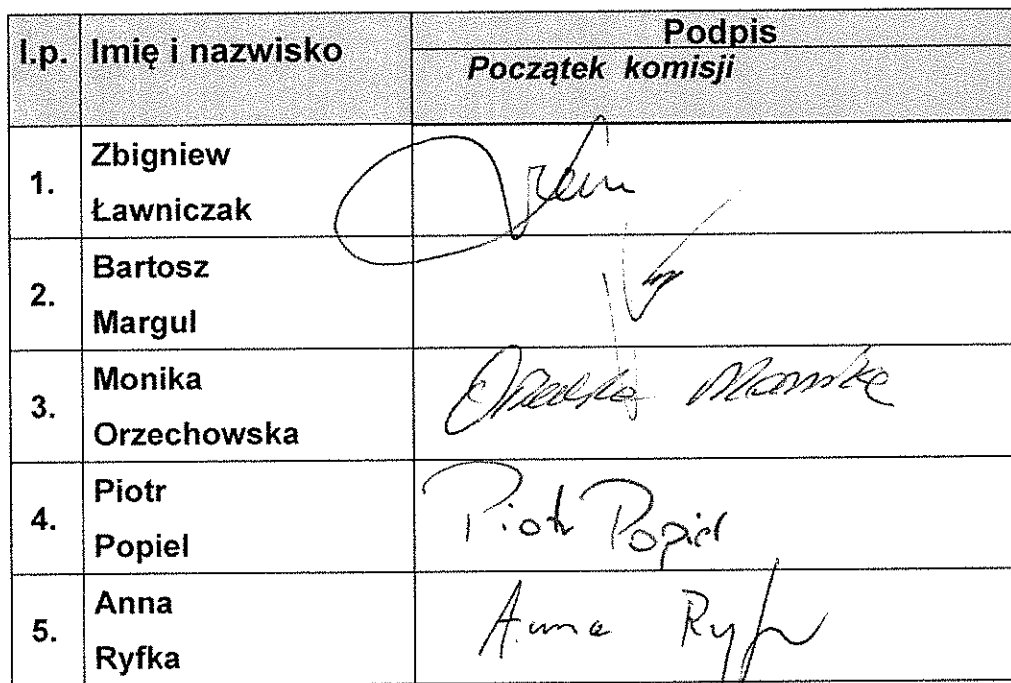 l.p. Imię i nazwisko Podpis
Początek komisji
1. Zbigniew
Ławniczak
2. Bartosz
Margul
3. Monika
Orzechowska Monika
4. Piotr
Popiel Piotr Popiel
5. Anna
Ryfka Anna Ryfka